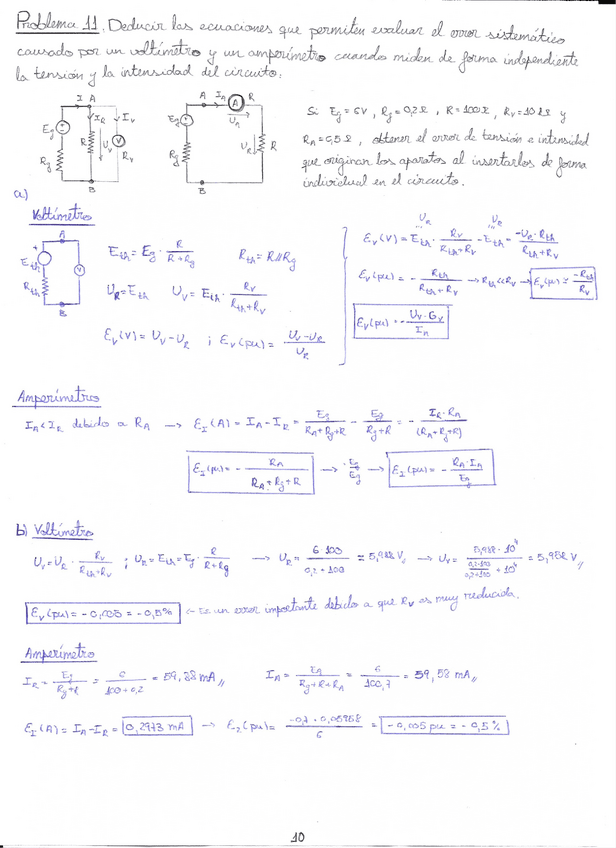 Problema 11. Deducir las ecuaciones que permiten evaluar el error sistemático
causado por un voltímetro y un amperímetro cuando miden de forma independiente
la tensión y la intensidad del circuito.
I A I_R I_v E_g R U_v V R_v R_g B
A I_A A R U_A E_g R_g U_R R B
Si E_g = 6V, R_g = 0,2 Ω, R = 100 Ω, R_v = 10 kΩ y
R_A = 0,5 Ω, obtener el error de tensión e intensidad
que originan los aparatos al insertarlos de forma
individual en el circuito.
a)
Voltímetro
A E_th V R_th B
E_th = E_g · R / (R + R_g) R_th = R//R_g
U_R = E_th U_v = E_th · R_v / (R_th + R_v)
Ɛ_v (V) = U_v - U_R ; Ɛ_v (pu) = (U_v - U_R) / U_R
U_v U_R
Ɛ_v (V) = E_th · R_v / (R_th + R_v) - E_th = -U_R · R_th / (R_th + R_v)
Ɛ_v (pu) = - R_th / (R_th + R_v) → R_th << R_v → Ɛ_v (pu) ≃ -R_th / R_v
Ɛ_v (pu) = - U_v · G_v / I_n
Amperímetros
I_A < I_R debido a R_A → Ɛ_I (A) = I_A - I_R = E_g / (R_A + R_g + R) - E_g / (R_g + R) = - I_R · R_A / (R_A + R_g + R)
Ɛ_I (pu) = - R_A / (R_A + R_g + R) → · E_g / E_g → Ɛ_I (pu) = - R_A · I_A / E_g
b) Voltímetro
U_v = U_R · R_v / (R_th + R_v) ; U_R = E_th = E_g · R / (R + R_g) → U_R = 6 · 100 / (0,2 + 100) = 5,988 V → U_v = 5,988 · 10^4 / (0,2·100 / (0,2+100) + 10^4) = 5,988 V
Ɛ_v (pu) = - 0,005 = - 0,5% ← Es un error importante debido a que R_v es muy reducida.
Amperímetro
I_R = E_g / (R_g + R) = 6 / (100 + 0,2) = 59,88 mA I_A = E_A / (R_g + R + R_A) = 6 / 100,7 = 59,58 mA
Ɛ_I (A) = I_A - I_R = 0,2973 mA → Ɛ_I (pu) = -0,5 · 0,05958 / 6 = - 0,005 pu = - 0,5 %
10